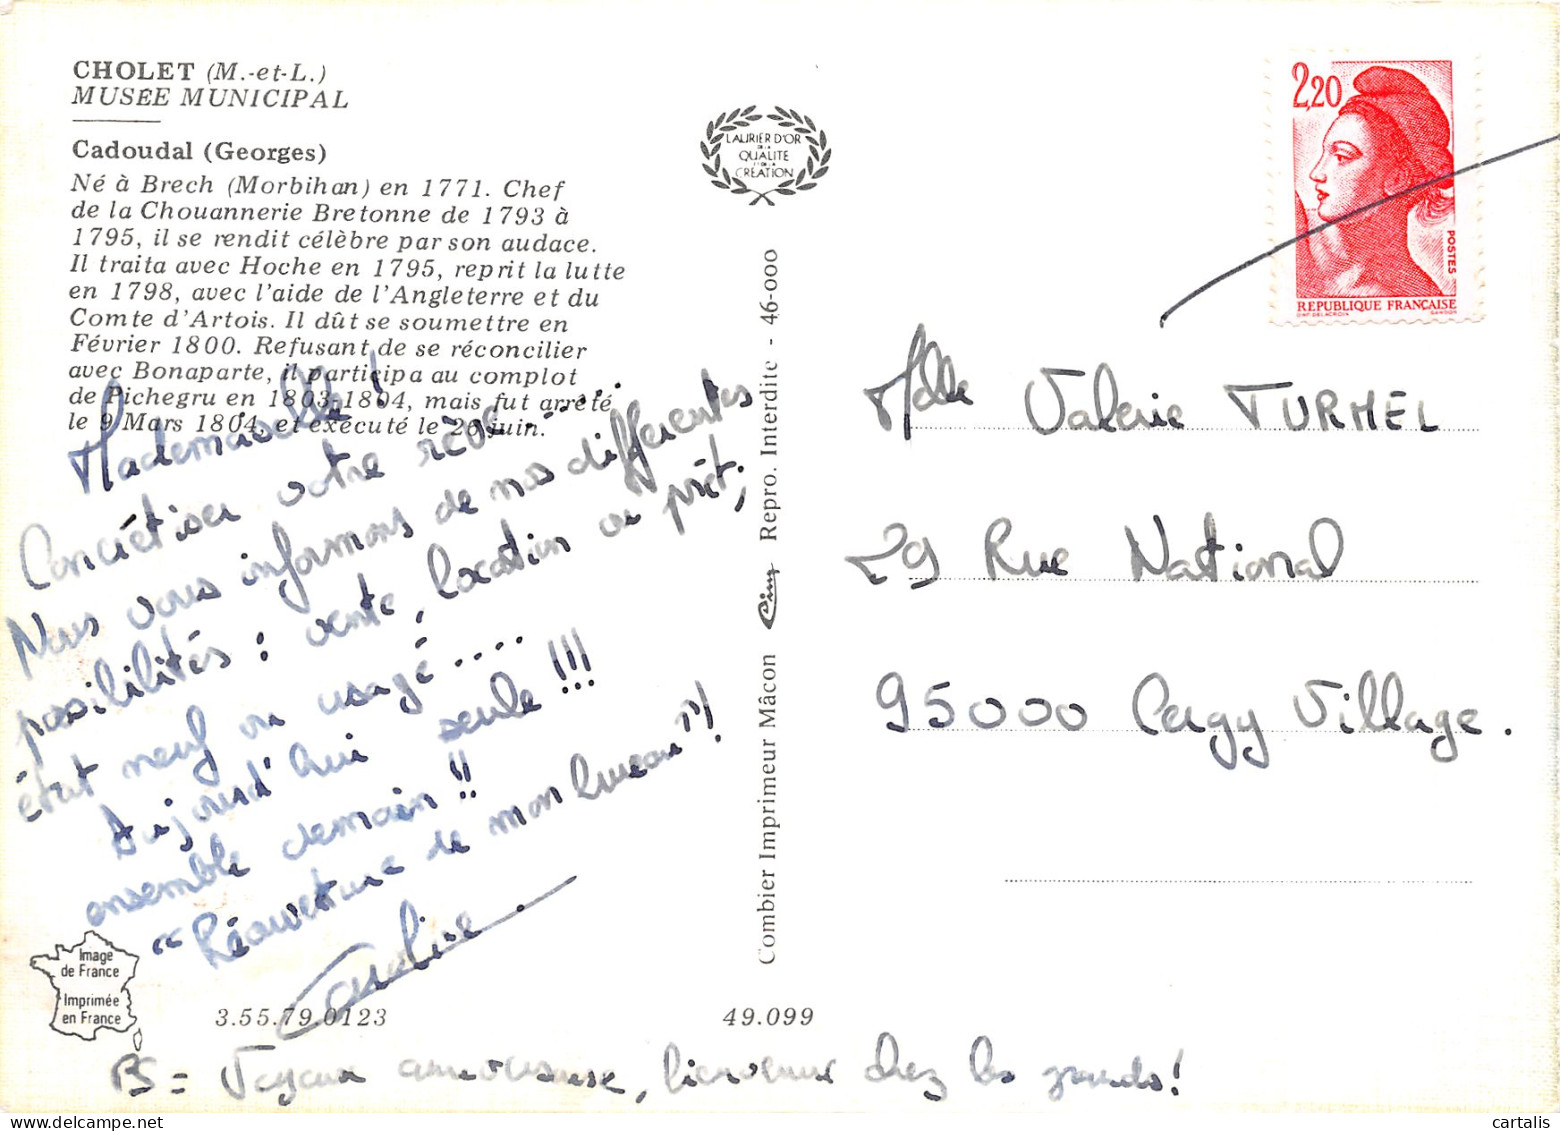 CHOLET (M.-et-L.)
MUSÉE MUNICIPAL
Cadoudal (Georges)
Né à Brech (Morbihan) en 1771. Chef
de la Chouannerie Bretonne de 1793 à
1795, il se rendit célèbre par son audace.
Il traita avec Hoche en 1795, reprit la lutte
en 1798, avec l'aide de l'Angleterre et du
Comte d'Artois. Il dût se soumettre en
Février 1800. Refusant de se réconcilier
avec Bonaparte, il participa au complot
de Pichegru en 1803-1804, mais fut arrêté
le 9 Mars 1804, et exécuté le 26 juin.
Mademoiselle !
Concrétiser votre rêve .....
Nous vous informons de nos différentes
possibilités : vente, location ou prêt,
état neuf ou usagé ....
Aujourd'hui seule !!!
ensemble demain !!
"Réouverture de mon bureau" !
Caroline.
Image
de France
Imprimée
en France
3.55.79.0123
49.099
PS = amoureuse, bienvenue chez les grands !
LAURIER D'OR
DE LA
QUALITE
ET DE LA
CRÉATION
Combier Imprimeur Mâcon Cim Repro. Interdite - 46-000
2,20
POSTES
REPUBLIQUE FRANÇAISE
D'AP. DELACROIX GANDON
Melle Valerie TURMEL
29 Rue National
95000 Cergy Village.
cartalis